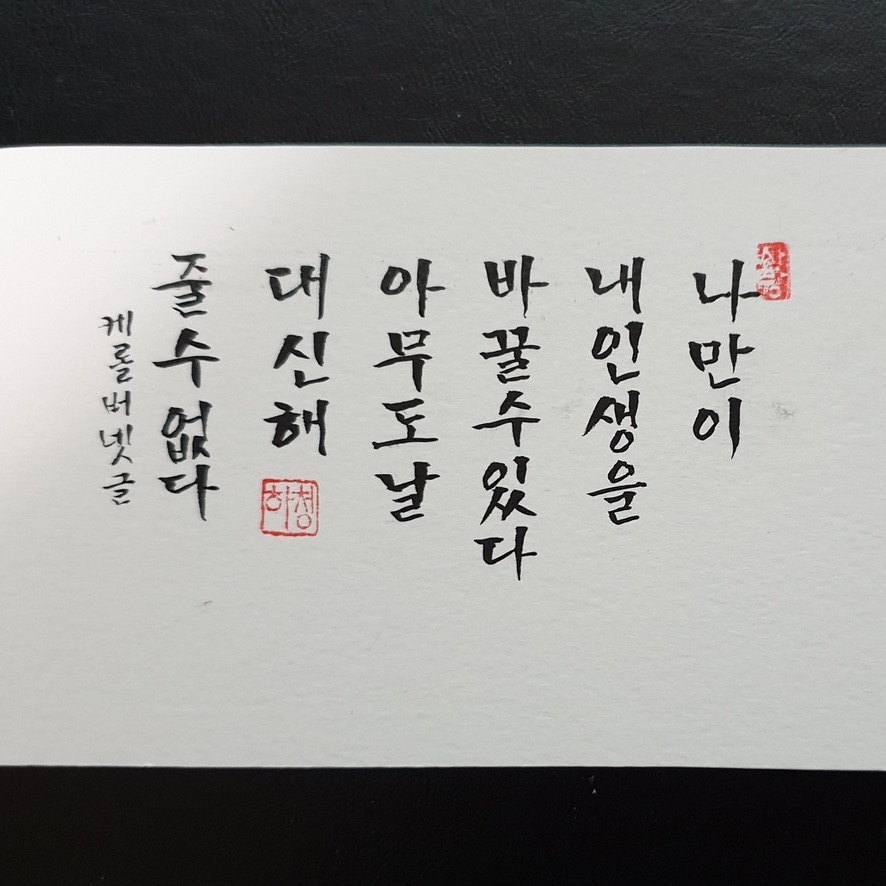 나만이
내인생을
바꿀수있다
아무도날
대신해
줄수없다
케롤버넷글
하정